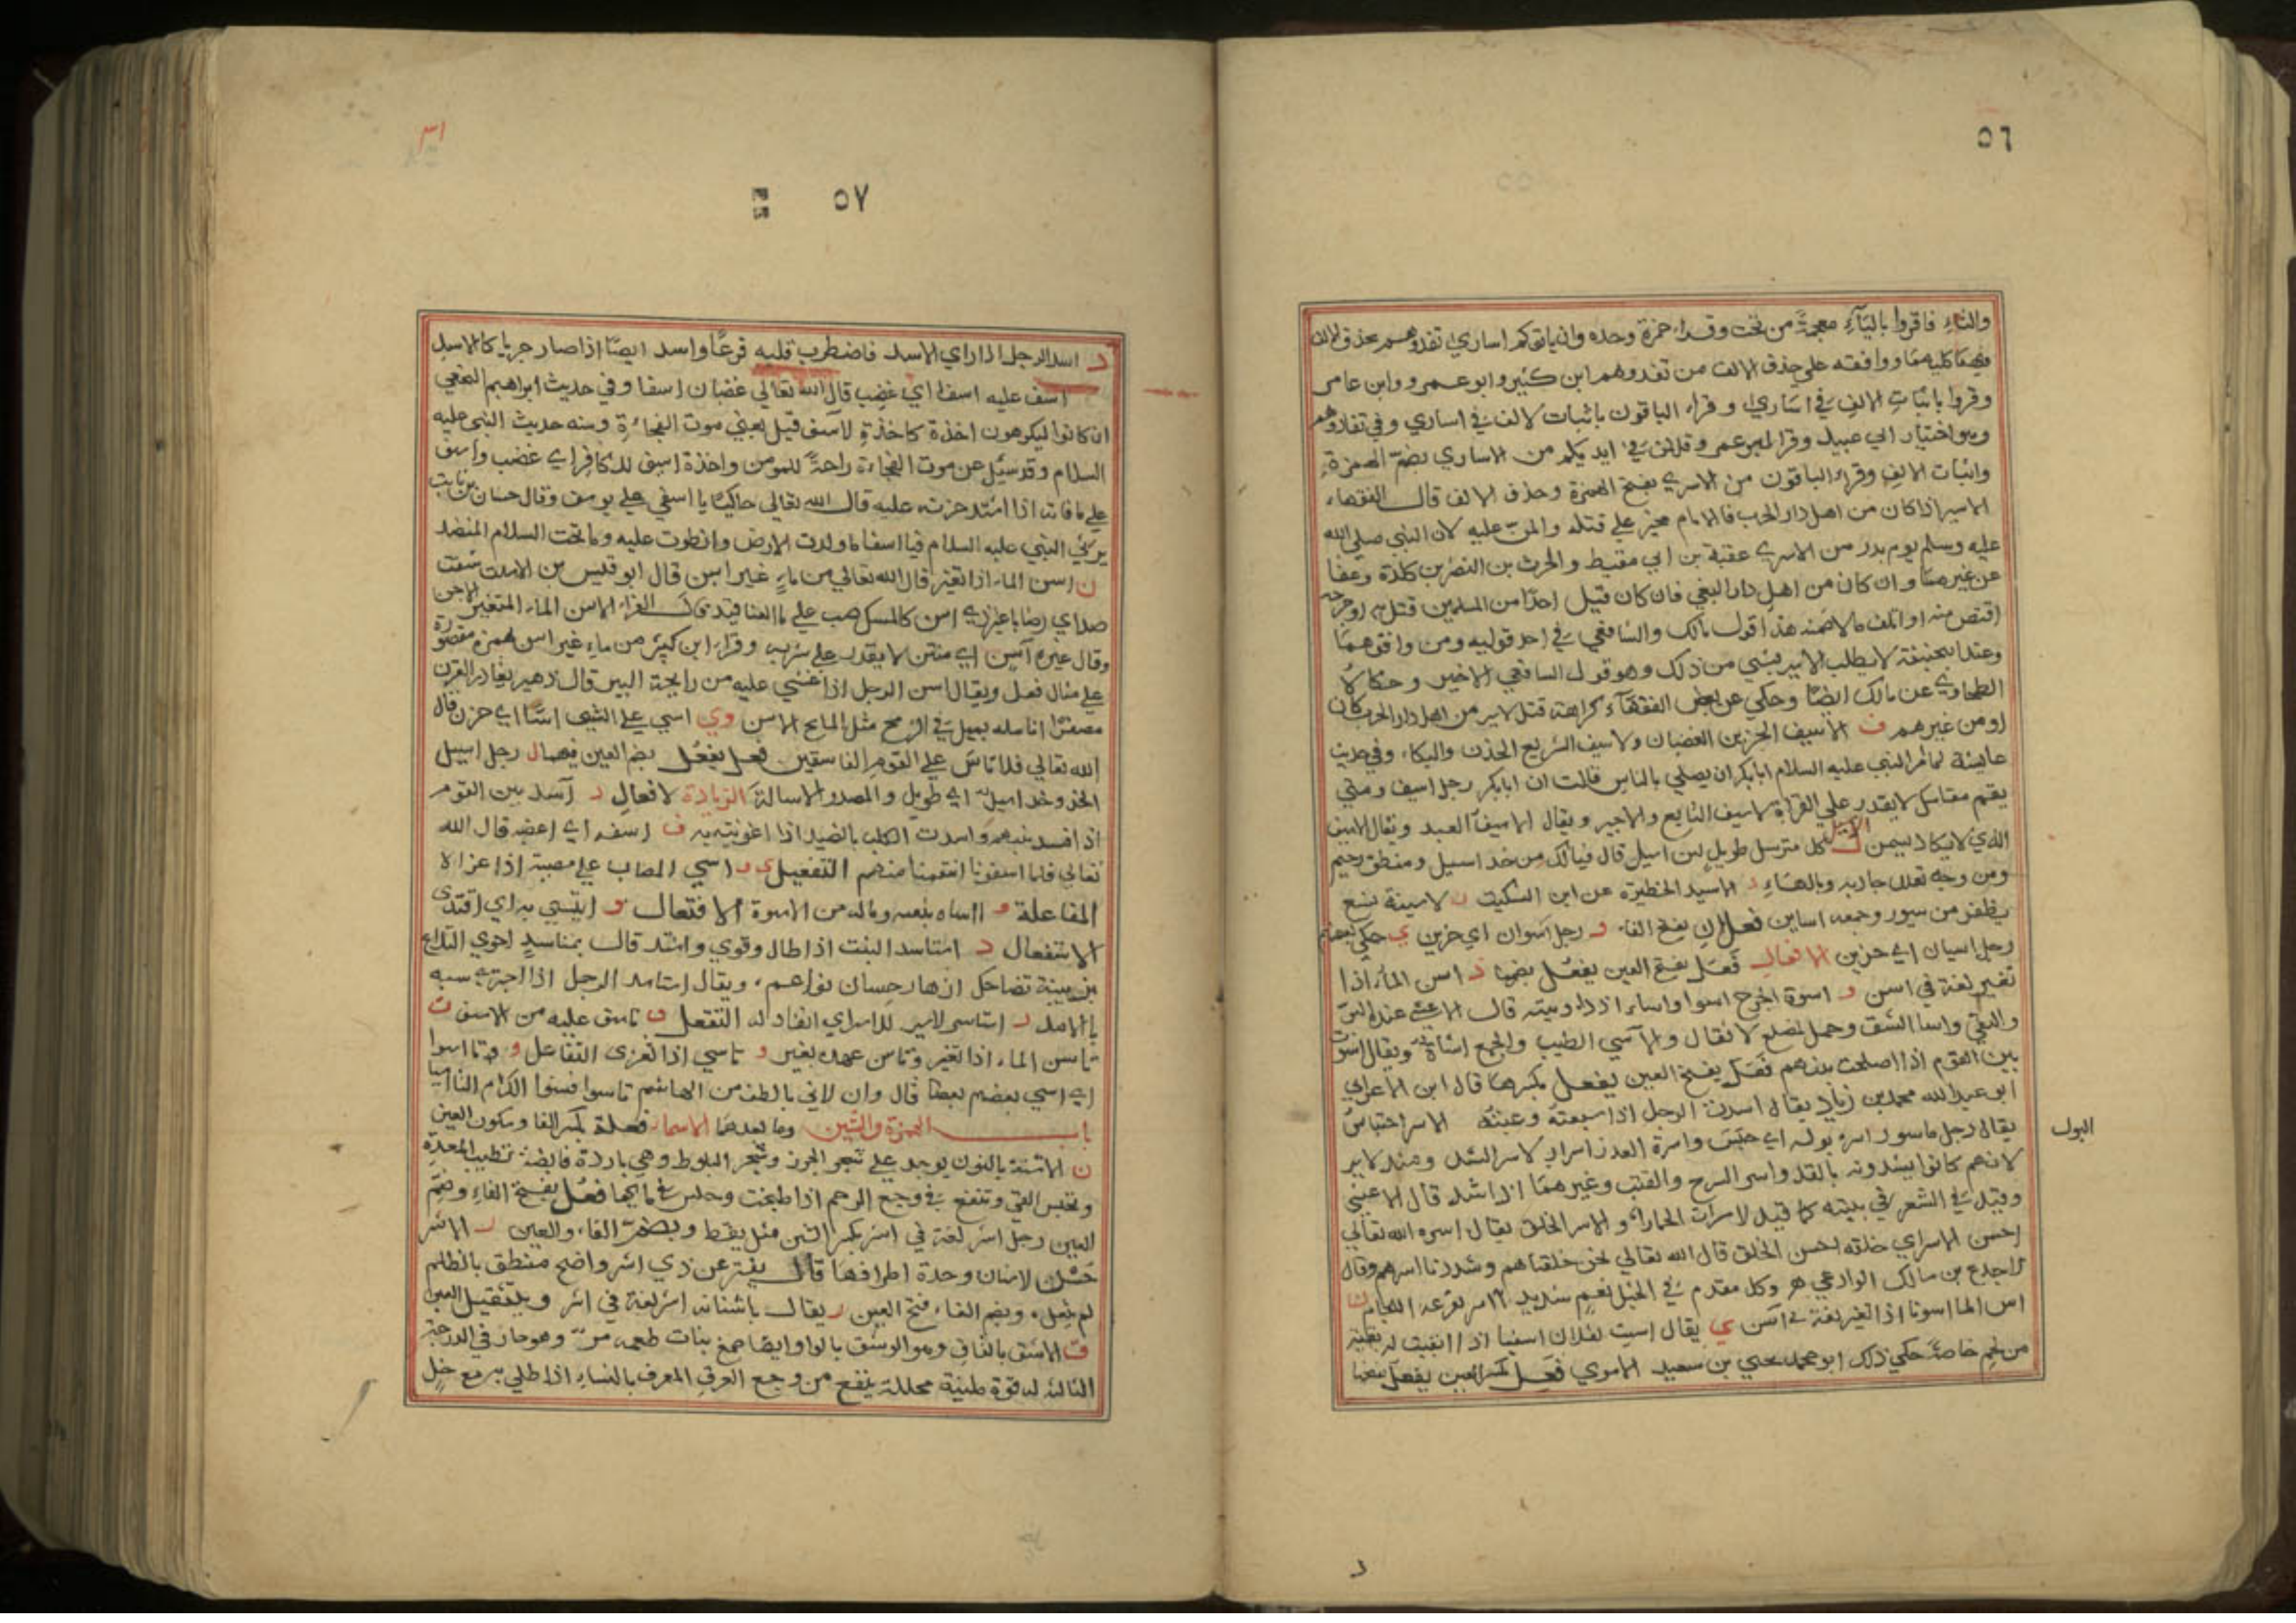 ٥٦
والتاء فاقروا بالتاء معجمة من تحت وقراء حمزة وحده وان ياتوكم اساري تفدوهم بحذف الالف
فيهما كليهما ووافقه على حذف الالف من تفدوهم ابن كثير وابو عمرو وابن عامر
وقروا باثبات الالف في اساري وقراء الباقون باثبات الالف في اساري وفي تفادوهم
وهو اختيار ابي عبيد وقرا ابو عمر وقل لمن في ايديكم من الاساري بضم الهمزة
واثبات الالف وقراء الباقون من الاسري بفتح الهمزة وحذف الالف قال الفقهاء
الاسير اذا كان من اهل دار الحرب فالامام مخير علي قتله والمن عليه لان النبي صلى الله
عليه وسلم يوم بدر من الاسري عقبة بن ابي مقيط والحرث بن النضر بن كلدة وعفا
عن غيرهما وان كان من اهل دار البغي فان كان قتيل احدا من المسلمين قتل به او جرحه
اقتص منه او اتلف مالا ضمنه هذا قول مالك والشافعي في احد قوليه ومن وافقهما
وعند ابيحنيفة لا يطلب الاسير بشي من ذلك وهو قول الشافعي الاخير وحكاه
الطحاوي عن مالك ايضا وحكي عن بعض الفقهاء كراهة قتل الاسير من اهل دار الحرب كان
او من غيرهم ف الاسيف الحزين الغضبان والاسيف السريع الحزن والبكاء وفي حديث
عايشة لما امر النبي عليه السلام ابابكر ان يصلي بالناس قالت ان ابابكر رجل اسيف ومتي
يقم مقامك لا يقدر علي القراة والاسيف التابع والاجير ويقال الاسيف العبد ويقال الاسيف
الذي لا يكاد يسمن ل الاسيل كل مسترسل طويل لين اسيل قال فيالك من خد اسيل ومنطق رخيم
ومن وجه تعلل جادبه وبالهاء د الاسيد الحظيرة عن ابن السكيت ن الاسينة نسع
يظفر من سيور وجمعه اساين فعلان بفتح الفاء و رجل اسوان اي حزين ي حكي بعضهم
رجل اسيان اي حزين الافعال فعل بفتح العين يفعل بضمها ن اسن الماء اذا
تغير لغة في اسن و اسوة الجرح اسوا واساء اذا داويته قال الاعشي عنده البر
والتقي واسا الشق وحمل لمضلع الاثقال والاسي الطبيب والجمع اساة ويقال اسوت
بين القوم اذا اصلحت بينهم فعل بفتح العين يفعل بكسرها قال ابن الاعرابي
ابو عبد الله محمد بن زياد يقال اسدت الرجل اذا سبعته وعبته الاسر احتباس
البول
يقال رجل ماسور اسر بوله اي حبس واسرة العدو اسرا والاسر الشد ومنه الاسير
لانهم كانوا يشدونه بالقد واسر السرح والقتب وغيرهما اذا شد قال الاعشي
وقيد في الشعر في بيته كما قيد الاسرات الحمارا والاسر الخلق يقال اسره الله تعالي
احسن الاسر اي خلقه احسن الخلق قال الله تعالي نحن خلقناهم وشددنا اسرهم وقال
الاجدع بن مالك الوادعي هر وكل مقدم في الخيل نعم شديد الاسر يقرعه اللجام ن
اسن الما اسونا اذا تغير لغة في اسن ي يقال اسيت لفلان اسيا اذا ابقيت له بقية
من لحم خاصة حكي ذلك ابو محمد يحيي بن سعيد الاموي فعل بكسر العين يفعل بفتحها
٥٧
د اسد الرجل اذا راي الاسد فاضطرب قلبه فزعا واسد ايضا اذا صار جريا كالاسد
اسف عليه اسفا اي غضب قال الله تعالي غضبان اسفا وفي حديث ابراهيم النخعي
ان كانوا ليكرهون اخذة كاخذة الاسف قيل يعني موت الفجاءة ومنه حديث النبي عليه
السلام وقد سئل عن موت الفجاءة راحة للمومن واخذة اسف للكافر اي غضب واسف
علي ما فاته اذا اشتد حزنه عليه قال الله تعالي حاكيا يا اسفي علي يوسف وقال حسان بن ثابت
يرثي النبي عليه السلام فيا اسفا ما ولدت الارض وانطوت عليه وما تحت السلام المنضد
ن اسن الماء اذا تغير قال الله تعالي من ماء غير اسن قال ابو قليس بن الاسلت سقت
صداي رضابا غير ذي اسن كالمسك صب علي ما العناقيد قال الفراء الاسن الماء المتغير الاجن
وقال غيره آسن اي منتن لا يقدر علي شربه وقراء ابن كثير من ماء غير اسن بهمزة مقصورة
علي مثال فعل ويقال اسن الرجل اذا غشي عليه من رايحة البير قال زهير يغادر القرن
مصفرا انامله يميل في الرمح مثل المايح الاسن وي اسي علي الشي اسا اي حزن قال
الله تعالي فلا تاس علي القوم الفاسقين فعل يفعل بضم العين فيهما ل رجل اسيل
الخد وخد اسيل اي طويل والمصدر الاسالة الزيادة الافعال د آسد بين القوم
اذا افسد بينهم واسدت الكلب بالصيد اذا اغريته به ف اسفه اي اغضبه قال الله
تعالي فلما اسفونا انتقمنا منهم التفعيل ي و اسي المصاب علي مصيبة اذا عزاه
المفاعلة و اساه بنفسه وماله من الاسوة الافتعال و ايتسي به اي اقتدي
الاستفعال د استاسد النبت اذا طال وقوي واشتد قال بمستاسد احوي التلاع
بن بيبة تضاحك ازهار حسان نواعم، ويقال استاسد الرجل اذا اجتري سبه
بالاسد ر استاسر الاسير للاسر اي انقاد له التفعل ف تاسف عليه من الاسف ن
تاسن الماء اذا تغير وتاسن عهده بغير و تاسي اذا تعزي التفاعل و وتاسوا
اي اسي بعضهم بعضا قال وان الاي بالطف من ال هاشم تاسوا فسنوا الكرام التاسيا
باب الهمزة والشين وما بعدهما الاسماء فعلة بكسر الفا وسكون العين
ن الاشنة بالنون يوجد علي شجر الجوز وشجر البلوط وهي باردة قابضة تطيب المعدة
وتحبس القي وتنفع في وجع الرحم اذا طبخت وجلس في مايها فعل بفتح الفاء وضم
العين رجل اشر لغة في اشر بكسر الشين مثل يقظ وبضم الفاء والعين ر الاشر
حسن الاسنان وحدة اطرافها قال يفتر عن ذي اشر واضح منطق بالظلم
لم يفعل، وبضم الفاء فتح العين ر يقال باسنانه اشر لغة في اشر وبتثقيل العين
ق الاشق بالقاف وهو الوشق بالواو ايضا صمغ نبات طعمه مر وهو حار في الدرجة
الثالثة له قوة طينية محللة ينفع من وجع العرق المعرف بالنساء اذا طلي به مع خل